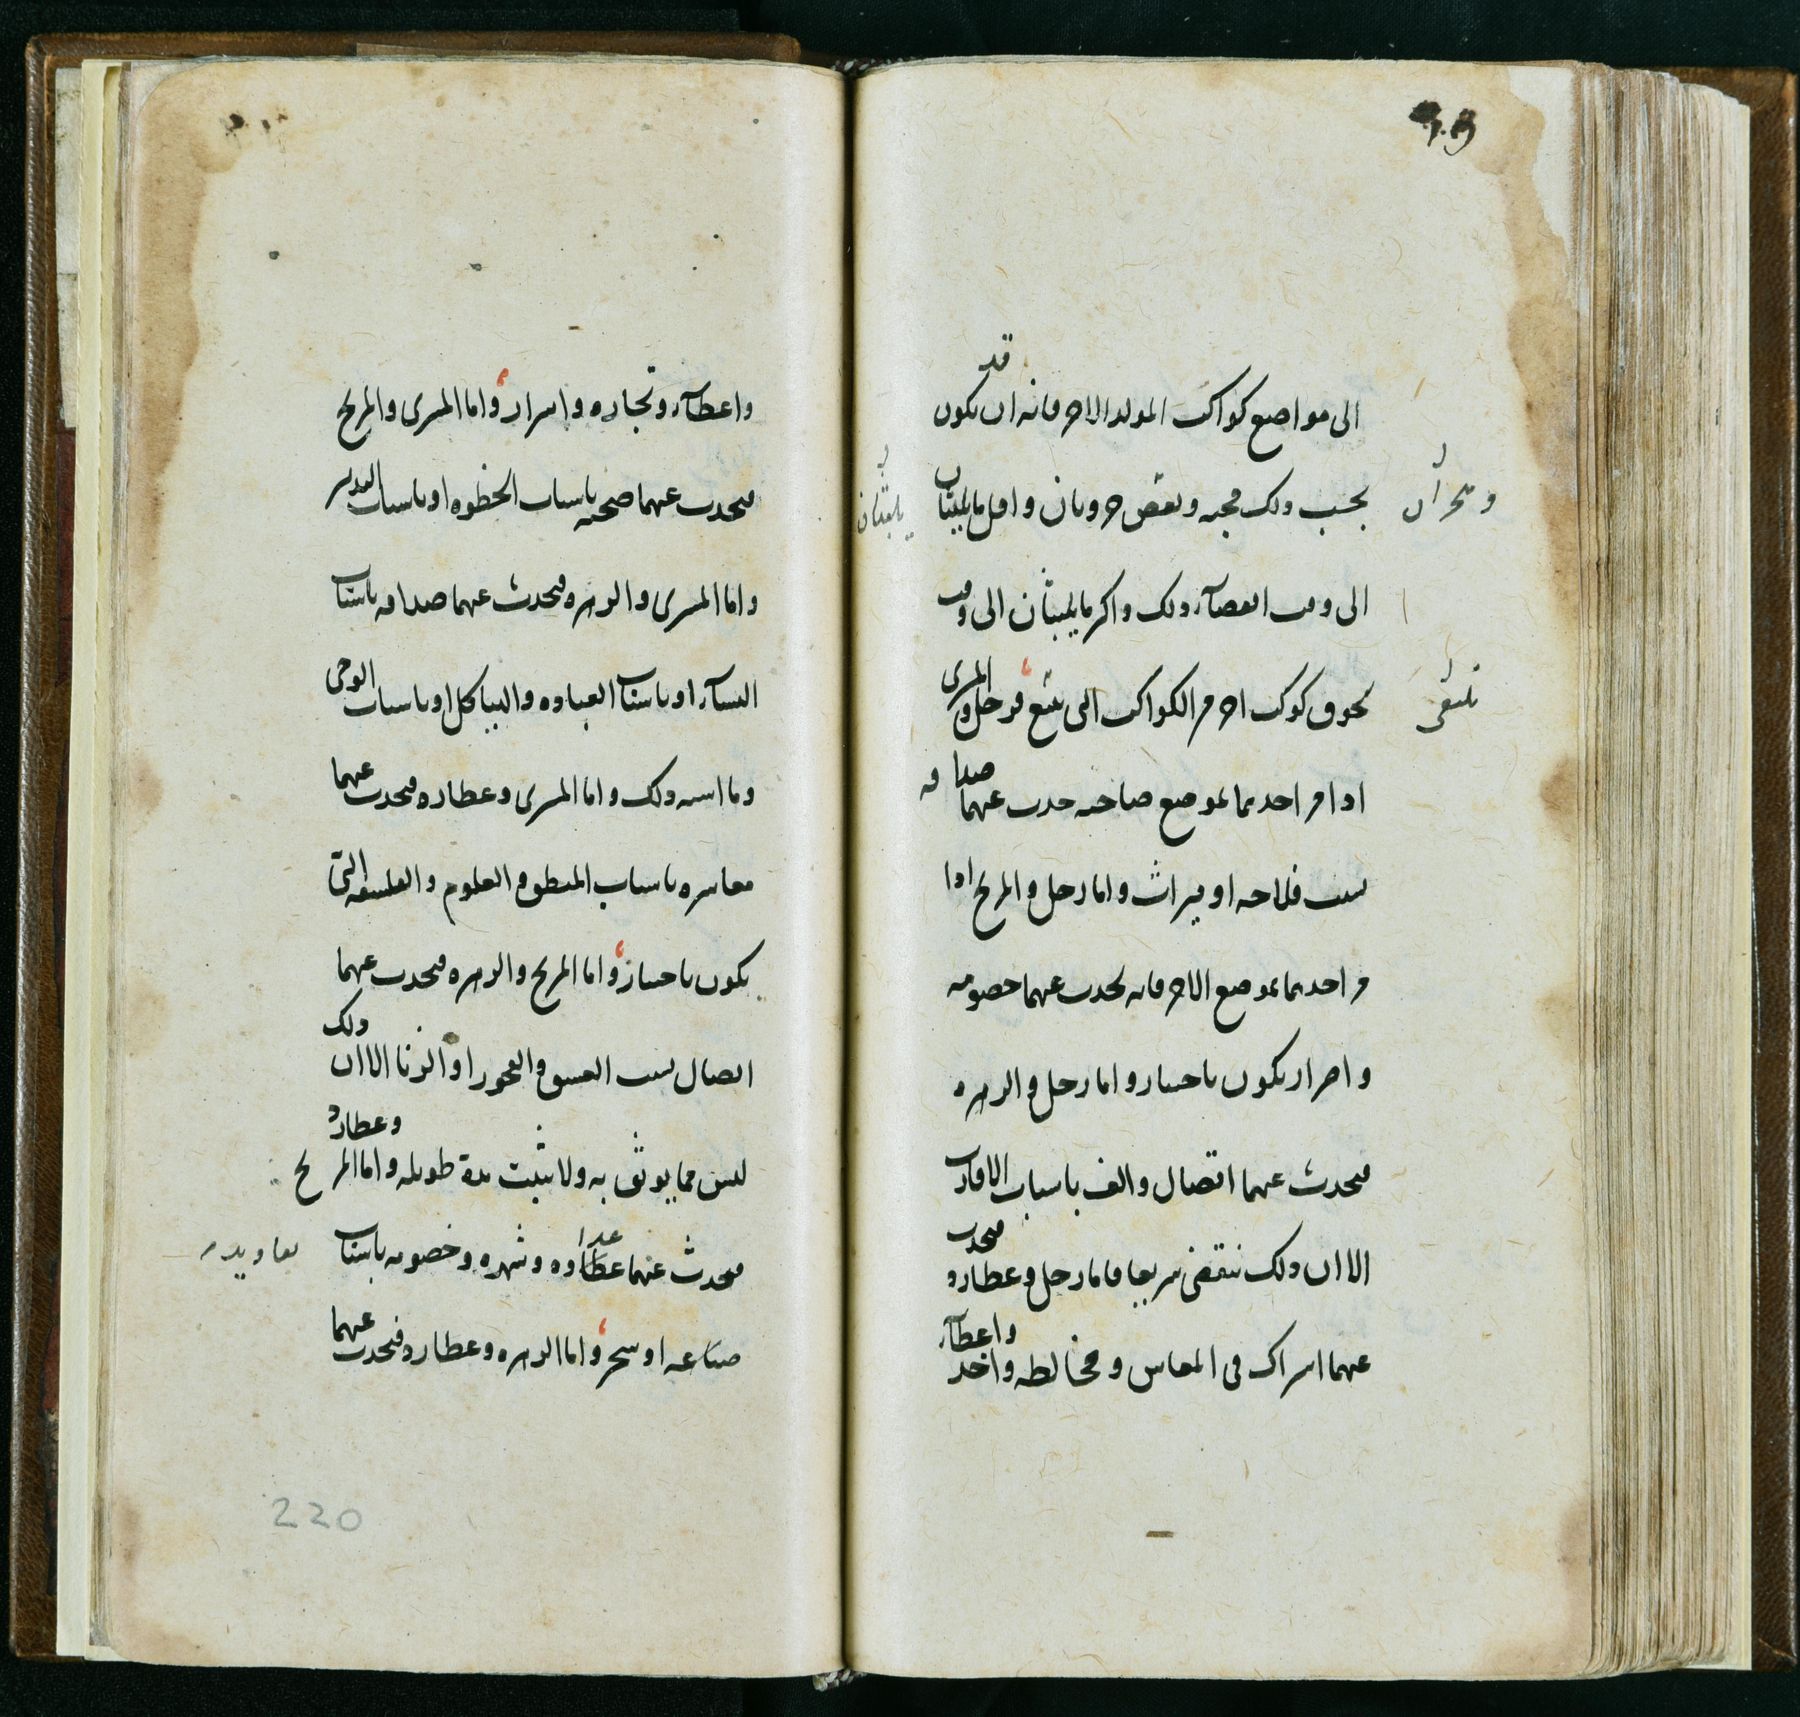 قد
الى مواضع كواكب المولد الاخر فانه ان يكون
بحسب ذلك محبه وبعض حرومان واقل ما يلبثان
وىحران
يلبثان
الى وقت انقضآء ذلك واكثر ما يلبثان الى وقت
لحوق كوكب اخر من الكواكب التي تتبع فزحل والمشترى
اذا مر احدهما بموضع صاحبه حدث عنهما صداقه
بسبب فلاحه او ميراث واما زحل والمريخ اذا
مر احدهما بموضع الاخر فانه يحدث عنهما خصومه
واضرار يكون باختيار واما زحل والزهره
فيحدث عنهما اتصال والف باسباب الاقارب
الا ان ذلك ينقضى سريعا فاما زحل وعطارد فيحدث
عنهما اشراك فى المعاش ومخالطه واخذ واعطآء
واعطآء وتجاره واسرار واما المشترى والمريخ
فيحدث عنهما صحبه باسباب الحظوه او باسباب التدبير
واما المشترى والزهره فيحدث عنهما صداقه باسباب
النسآء او باسباب العباده والهياكل او باسباب الوحى
وما اشبه ذلك واما المشترى وعطارد فيحدث عنهما
معاشره باسباب المنطق والعلوم والفلسفه التي
يكون باختيار واما المريخ والزهره فيحدث عنهما
اتصال بسبب العشق والفجور او الزنا الا ان ذلك
ليس مما يوثق به ولا يثبت مدة طويله واما المريخ وعطارد
فيحدث عنهما عداوه وشهره وخصومه باسباب
صناعه او سحر واما الزهره وعطارد فيحدث عنهما
220